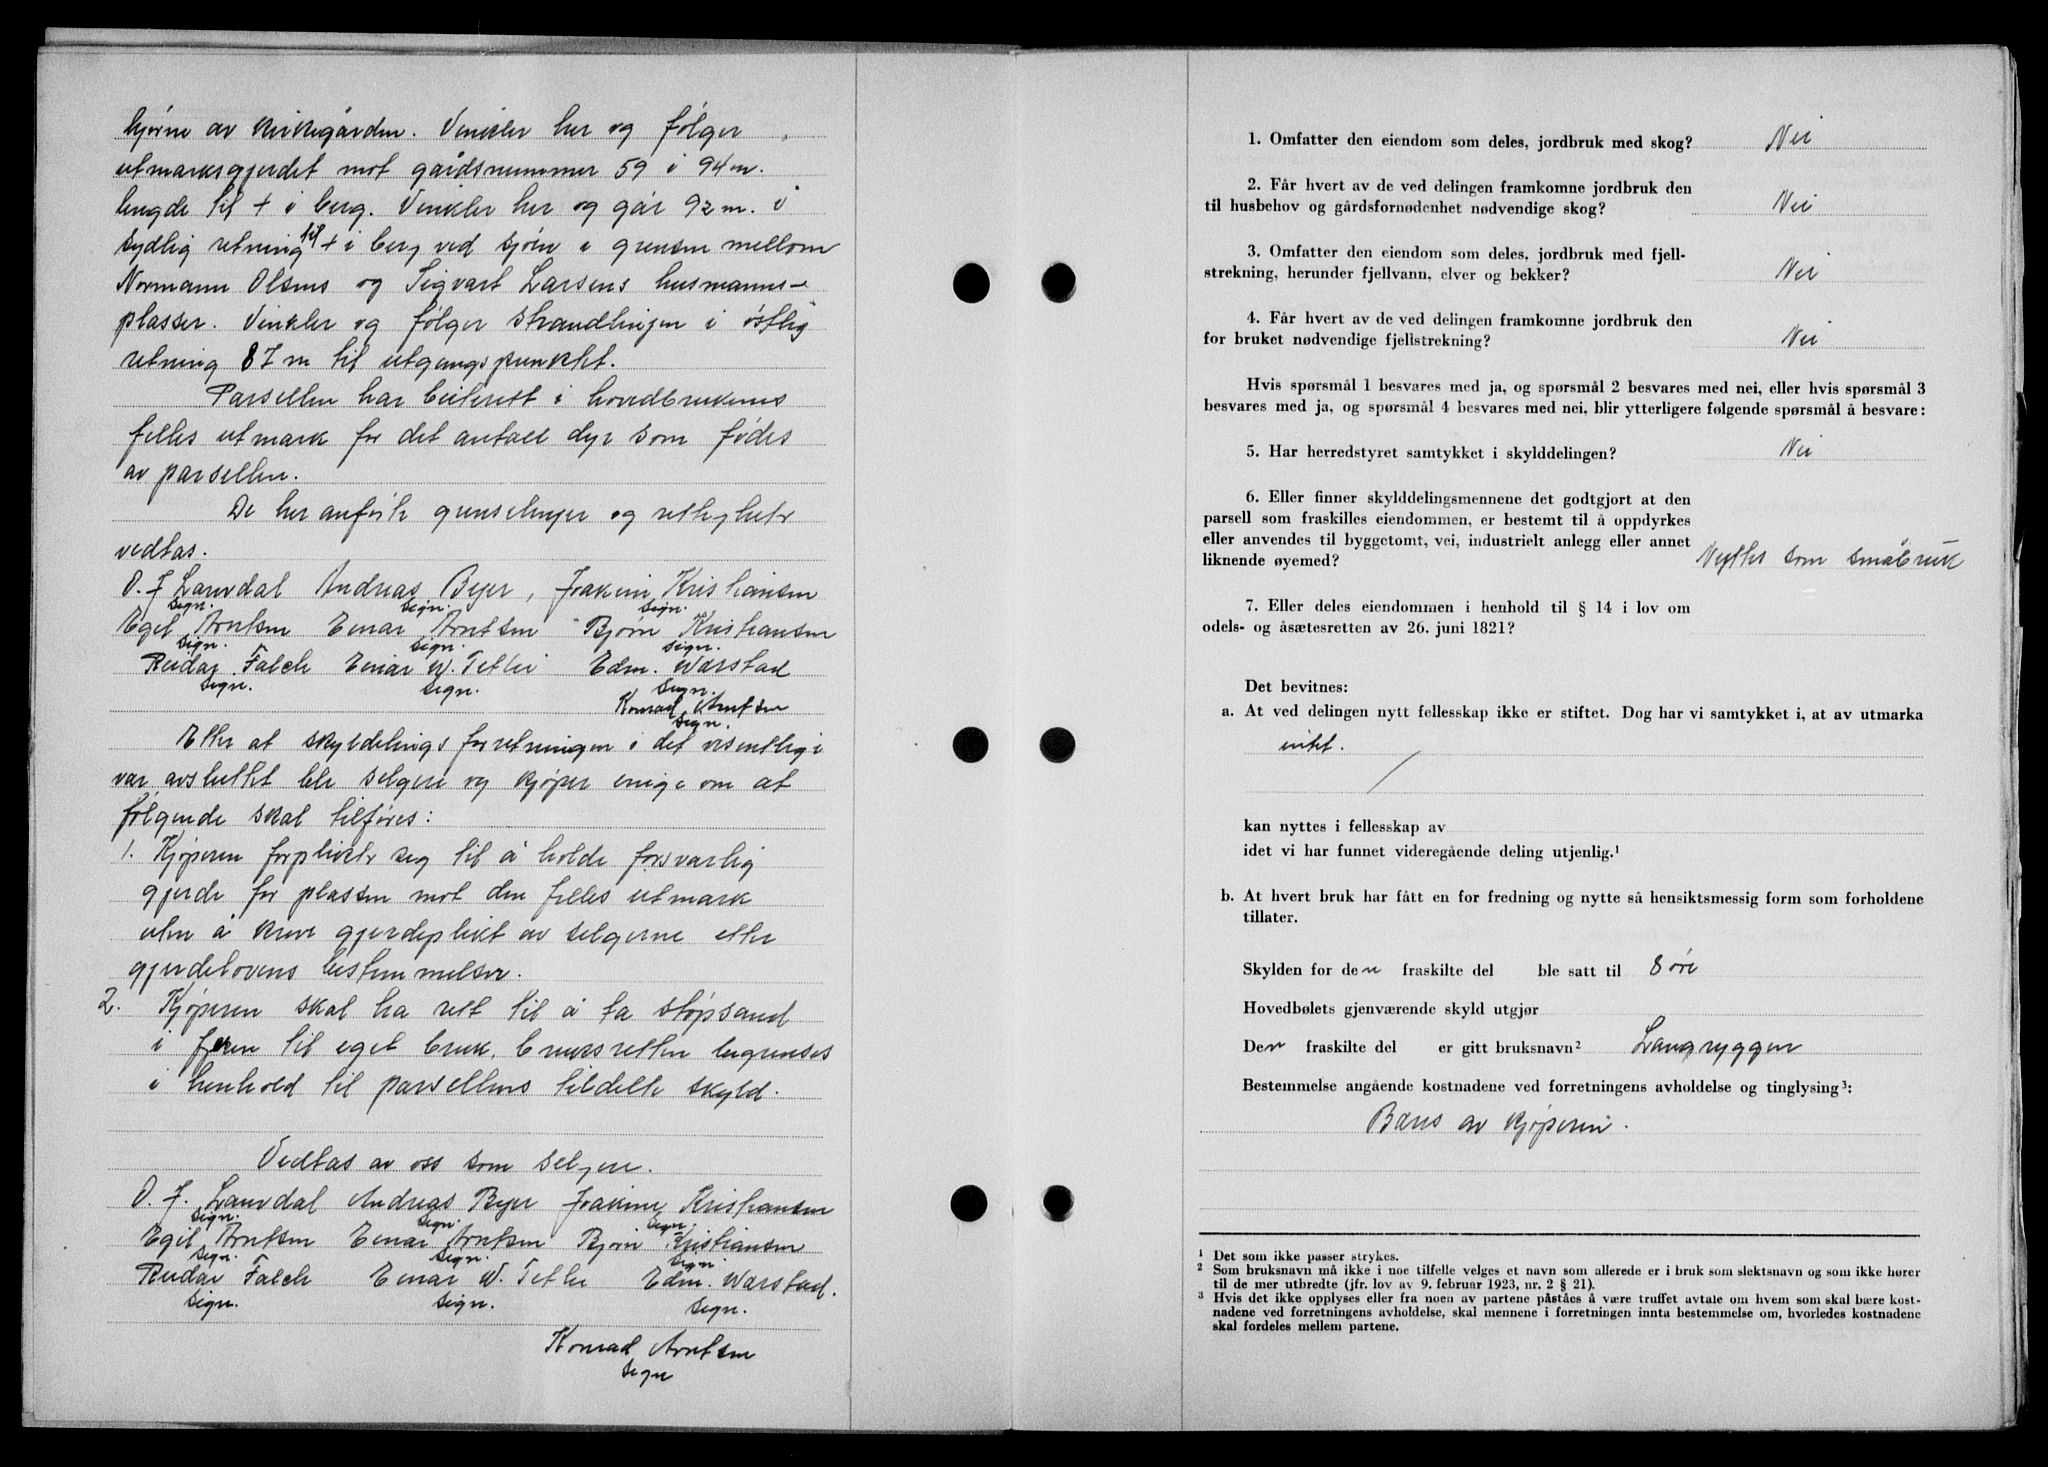 hjørne av kirkegården. Vinkler her og følger
utmarksgjerdet mot gårdsnummer 59 i 94 m.
lengde til + i berg. Vinkler her og går 92 m. i
sydlig retning til + i berg ved sjøen i grensen mellom
Normann Olsens og Sigvart Larsens husmanns-
plasser. Vinkler og følger strandlinjen i østlig
retning 87 m til utgangspunktet.
Parsellen har beiterett i hovedbrukenes
felles utmark for det antall dyr som fødes
av parsellen.
De her anførte grenselinjer og rettigheter
vedtas.
O. J. Lavdal Andreas Bejer, Joakim Kristiansen
sign. sign. sign.
Egil Arntsen Einar Arntsen Bjørn Kristiansen
sign. sign. sign.
Reidar Falch Einar W. Tetlie Edm. Warstad
sign. sign. sign.
Konrad Arntsen
sign.
Etter at skyldelingsforretningen i det vesentlige
var avsluttet ble selgere og kjøper enige om at
følgende skal tilføres:
1. Kjøperen forplikter seg til å holde forsvarlig
gjerde for plassen mot den felles utmark
uten å kreve gjerdeplikt av selgerne etter
gjerdelovens bestemmelser.
2. Kjøperen skal ha rett til å ta støpsand
i fjæren til eget bruk. Bruksretten begrenses
i henhold til parsellens tildelte skyld.
Vedtas av oss som selgere.
O. J. Lavdal Andreas Bejer Joakim Kristiansen
sign. sign. sign.
Egil Arntsen Einar Arntsen Bjørn Kristiansen
sign. sign. sign.
Reidar Falch Einar W. Tetlie Edm. Warstad.
sign. sign. sign.
Konrad Arntsen
sign
1. Omfatter den eiendom som deles, jordbruk med skog? Nei
2. Får hvert av de ved delingen framkomne jordbruk den
til husbehov og gårdsfornødenhet nødvendige skog? Nei
3. Omfatter den eiendom som deles, jordbruk med fjell-
strekning, herunder fjellvann, elver og bekker? Nei
4. Får hvert av de ved delingen framkomne jordbruk den
for bruket nødvendige fjellstrekning? Nei
Hvis spørsmål 1 besvares med ja, og spørsmål 2 besvares med nei, eller hvis spørsmål 3
besvares med ja, og spørsmål 4 besvares med nei, blir ytterligere følgende spørsmål å besvare:
5. Har herredstyret samtykket i skylddelingen? Nei
6. Eller finner skylddelingsmennene det godtgjort at den
parsell som fraskilles eiendommen, er bestemt til å oppdyrkes
eller anvendes til byggetomt, vei, industrielt anlegg eller annet
liknende øyemed? Nyttes som småbruk
7. Eller deles eiendommen i henhold til § 14 i lov om
odels- og åsætesretten av 26. juni 1821?
Det bevitnes:
a. At ved delingen nytt fellesskap ikke er stiftet. Dog har vi samtykket i, at av utmarka
intet.
kan nyttes i fellesskap av
idet vi har funnet videregående deling utjenlig.¹
b. At hvert bruk har fått en for fredning og nytte så hensiktsmessig form som forholdene
tillater.
Skylden for den fraskilte del ble satt til 8 øre
Hovedbølets gjenværende skyld utgjør
Den fraskilte del er gitt bruksnavn² Langryggen
Bestemmelse angående kostnadene ved forretningens avholdelse og tinglysing³:
Bæres av kjøperen.
¹ Det som ikke passer strykes.
² Som bruksnavn må ikke i noe tilfelle velges et navn som allerede er i bruk som slektsnavn og som ikke hører
til de mer utbredte (jfr. lov av 9. februar 1923, nr. 2 § 21).
³ Hvis det ikke opplyses eller fra noen av partene påståes å være truffet avtale om hvem som skal bære kost-
nadene ved forretningens avholdelse, skal mennene i forretningen innta bestemmelse om, hvorledes kostnadene
skal fordeles mellem partene.